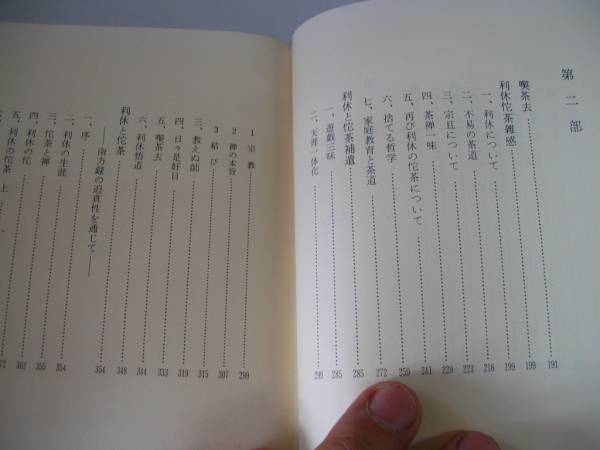 第二部
喫茶去 191
利休侘茶雑感 199
一、利休について 199
二、不易の茶道 216
三、宗旦について 223
四、茶禅一味 229
五、再び利休の侘茶について 241
六、捨てる哲学 250
七、家庭教育と茶道 272
利休と侘茶補遺 285
一、遊戯三昧 285
二、天 一体化
1 宗教 299
2 禅の本旨 307
3 結び 315
三、教えぬ師 319
四、日々是好日 333
五、喫茶去 344
六、利休悟道 348
利休と侘茶 354
――南方録の迫真性を通じて――
一、序 354
二、利休の生涯 355
三、侘茶と禅 362
四、利休の侘
五、利休の侘茶 上